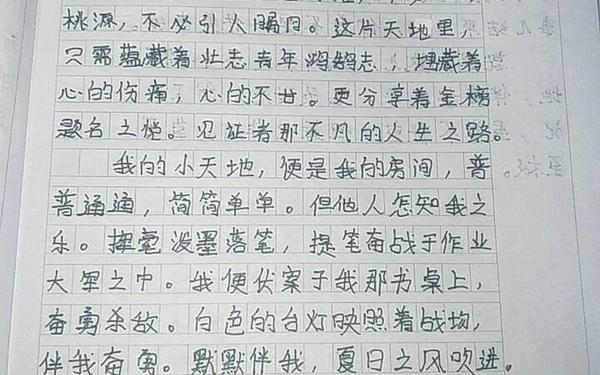 桃源，不必引人瞩目。这片天地里，
只需蕴藏着壮志青年鸿鹄志，埋藏着
心的伤痛，心的不甘。更分享着金榜
题名之悦。见证者那不凡的人生之路。
我的小天地，便是我的房间，普
普通通，简简单单。但他人怎知我之
乐。挥毫泼墨落笔，提笔奋战于作业
大军之中。我便伏案于我那书桌上，
奋勇杀敌。白色的台灯映照着战场，
伴我奋勇。默默伴我，夏日之风吹进。